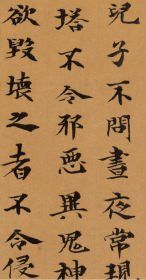 兒子不問晝夜常現
塔不令邪惡異鬼神
欲毀壞之者不令侵